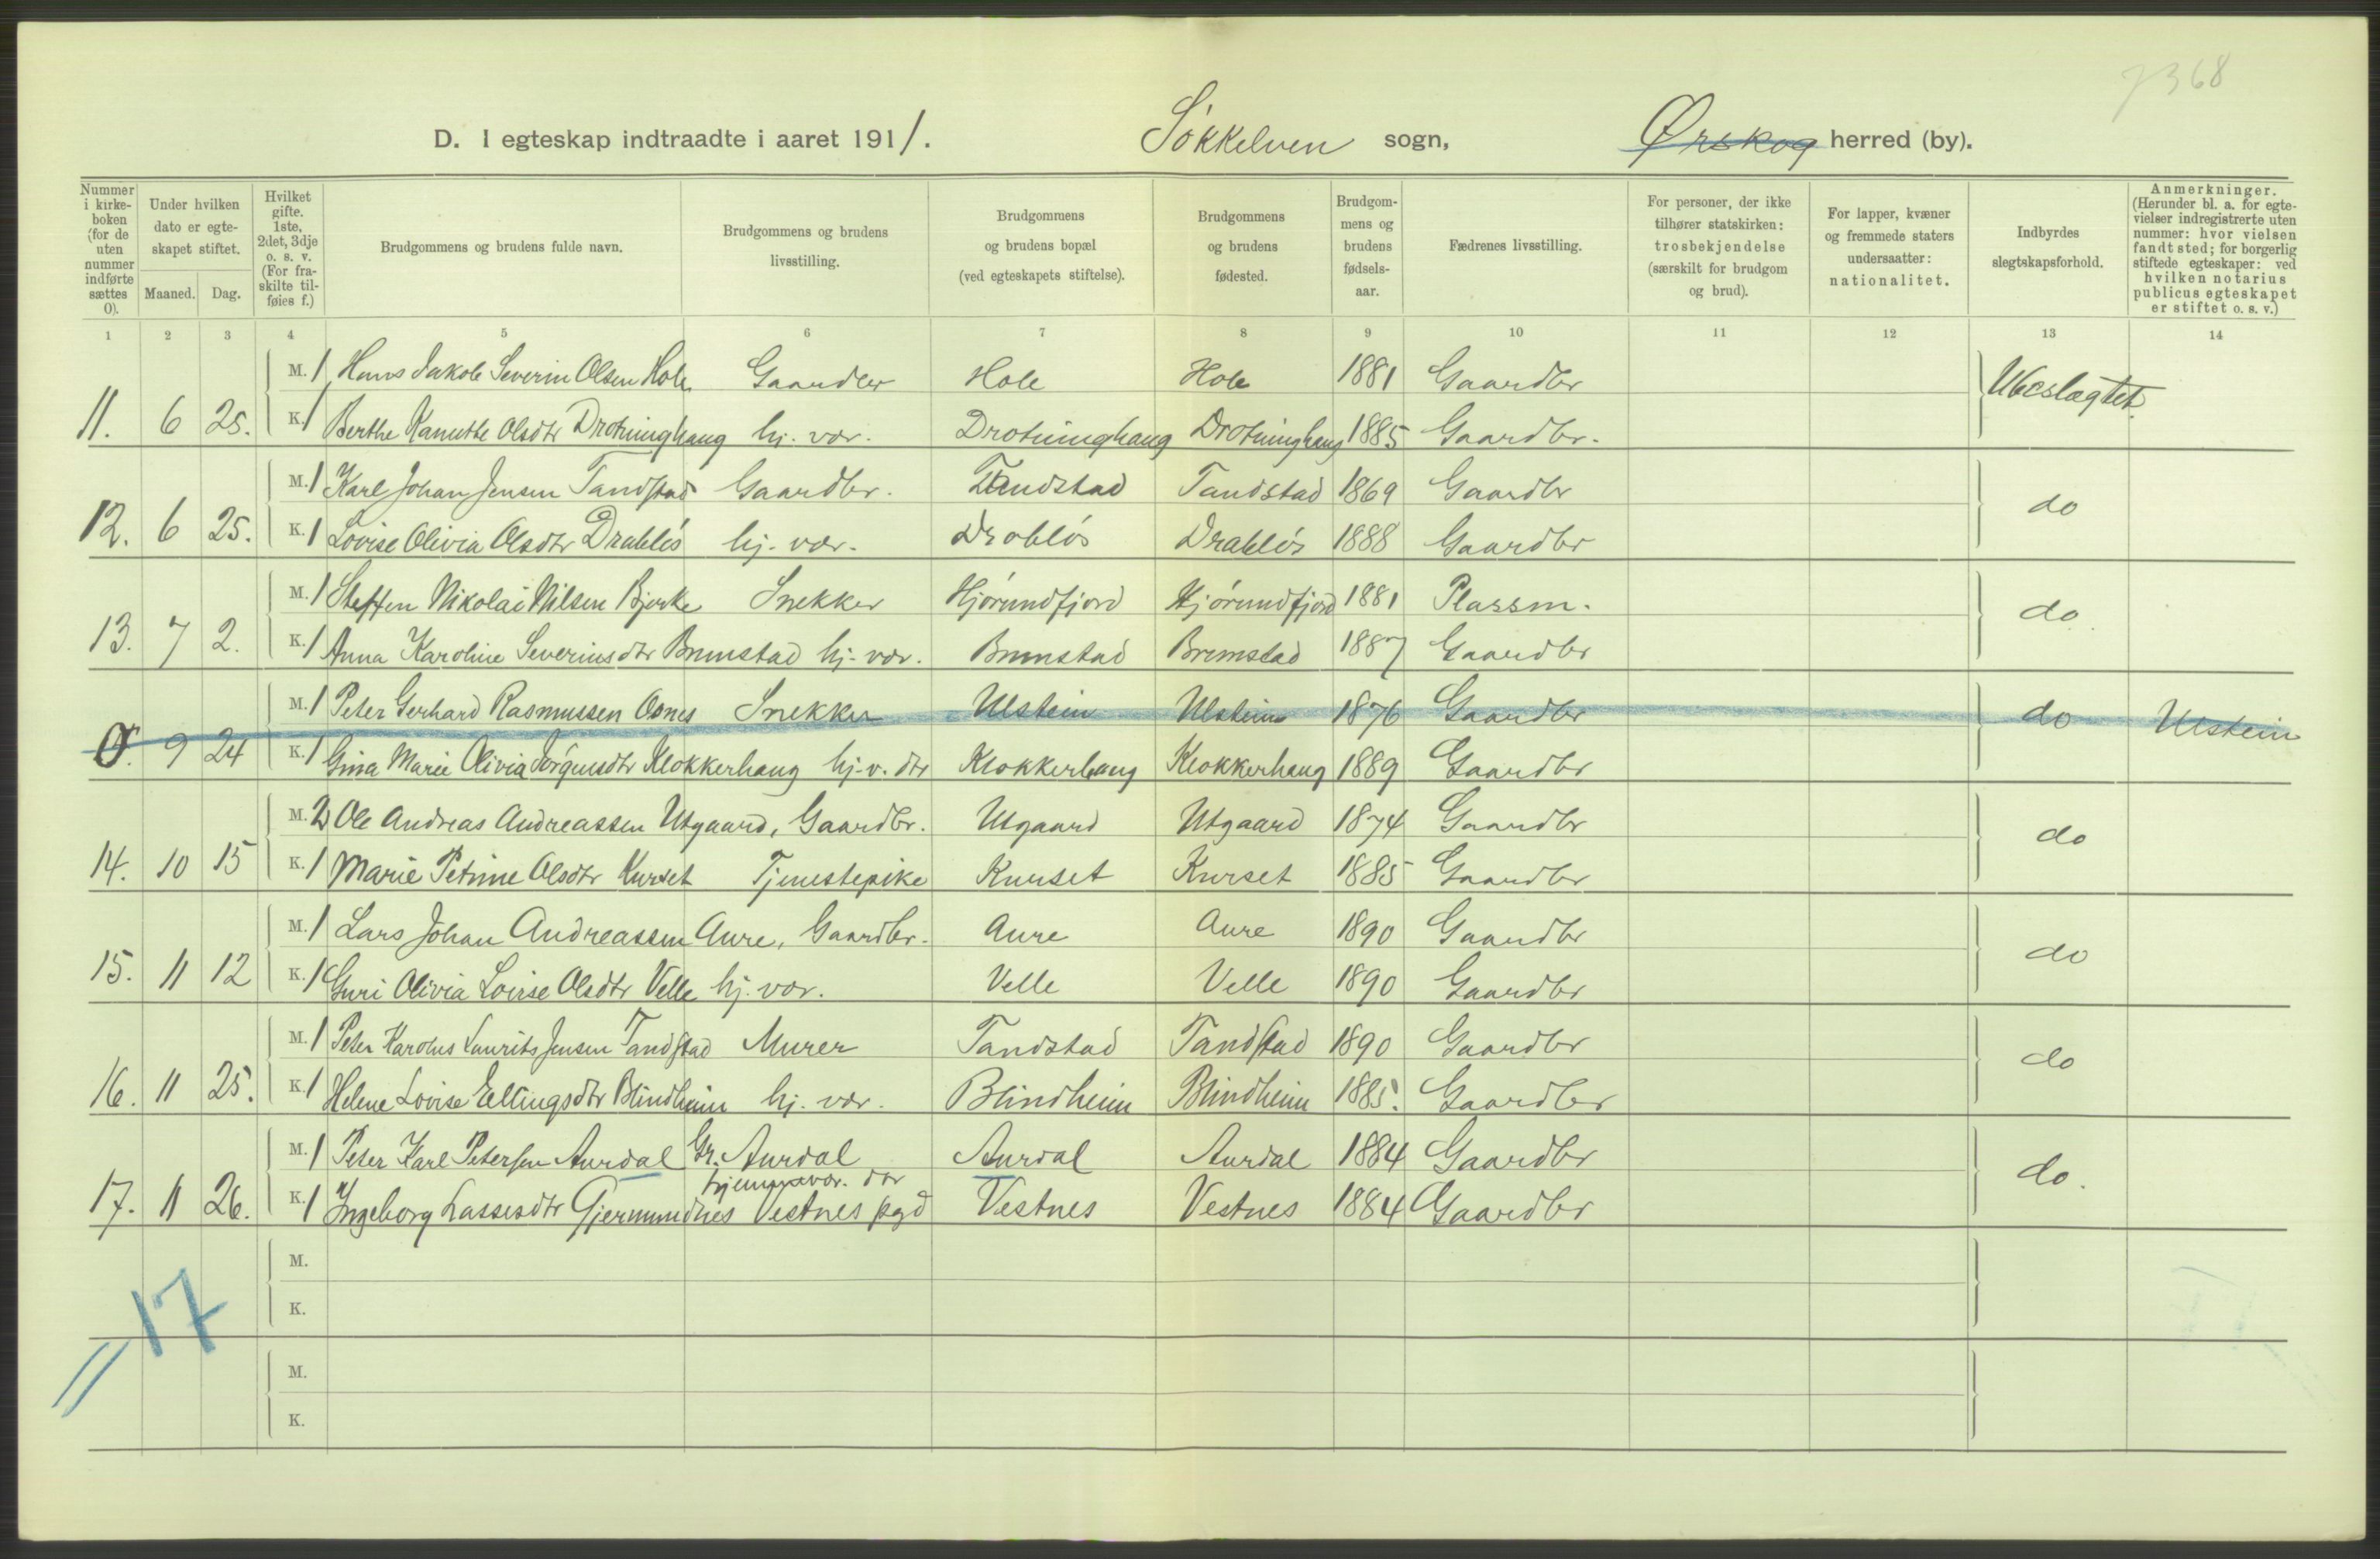 7368
D. I egteskap indtraadte i aaret 1911. Søkkelven sogn, Ørskog herred (by).
Nummer i kirkeboken (for de uten nummer indførte sættes 0).
Under hvilken dato er egteskapet stiftet.
Maaned. Dag.
Hvilket gifte. 1ste, 2det, 3dje o. s. v. (For fraskilte tilføies f.)
Brudgommens og brudens fulde navn.
Brudgommens og brudens livsstilling.
Brudgommens og brudens bopæl (ved egteskapets stiftelse).
Brudgommens og brudens fødested.
Brudgommens og brudens fødselsaar.
Fædrenes livsstilling.
For personer, der ikke tilhører statskirken: trosbekjendelse (særskilt for brudgom og brud).
For lapper, kvæner og fremmede staters undersaatter: nationalitet.
Indbyrdes slegtskapsforhold.
Anmerkninger. (Herunder bl. a. for egtevielser indregistrerte uten nummer: hvor vielsen fandt sted; for borgerlig stiftede egteskaper: ved hvilken notarius publicus egteskapet er stiftet o. s. v.)
1 2 3 4 5 6 7 8 9 10 11 12 13 14
M. 1 Hans Jakob Severin Olsen Hole Gaardbr Hole Hole 1881 Gaardbr Ubeslægtet
11. 6 25. K. 1 Berthe Kanutte Olsdtr Drotninghaug hj. vær. Drotninghaug Drotninghaug 1885 Gaardbr.
M. 1 Karl Johan Jensen Tandstad Gaardbr. Tandstad Tandstad 1869 Gaardbr do
12. 6 25. K. 1 Lovise Olivia Olsdtr Drabløs hj. vær. Drabløs Drabløs 1888 Gaardbr
M. 1 Steffen Nikolai Nilsen Bjerke Snekker Hjørundfjord Hjørundfjord 1881 Plassm. do.
13. 7 2. K. 1 Anna Karoline Severinsdtr Brunstad hj. vær. Brunstad Brunstad 1887 Gaardbr
M. 1 Peter Gerhard Rasmussen Osnes Snekker Ulstein Ulstein 1876 Gaardbr do Ulstein
0. 9 24 K. 1 Gina Marie Olivia Jørgensdtr Klokkerhaug hj. v. dtr Klokkerhaug Klokkerhaug 1889 Gaardbr
M. 2 Ole Andreas Andreassen Utgaard, Gaardbr. Utgaard Utgaard 1874 Gaardbr do
14. 10 15 K. 1 Marie Petrine Olsdtr Kurset Tjenestepike Kurset Kurset 1885 Gaardbr
M. 1 Lars Johan Andreassen Aure, Gaardbr. Aure Aure 1890 Gaardbr do
15. 11 12 K. 1 Guri Olivia Lovise Olsdtr Velle hj. vær. Velle Velle 1890 Gaardbr
M. 1 Peter Karolus Laurits Jensen Tandstad Murer Tandstad Tandstad 1890 Gaardbr do
16. 11 25. K. 1 Helene Lovise Ellingsdtr Blindheim hj. vær. Blindheim Blindheim 1885. Gaardbr
M. 1 Peter Karl Petersen Aurdal Gr. Aurdal Aurdal Aurdal 1884 Gaardbr do.
hjemmevær. dtr
17. 11 26. K. 1 Ingeborg Lassesdtr Gjermundnes Vestnes pgd Vestnes Vestnes 1884 Gaardbr
M.
K.
17
M.
K.